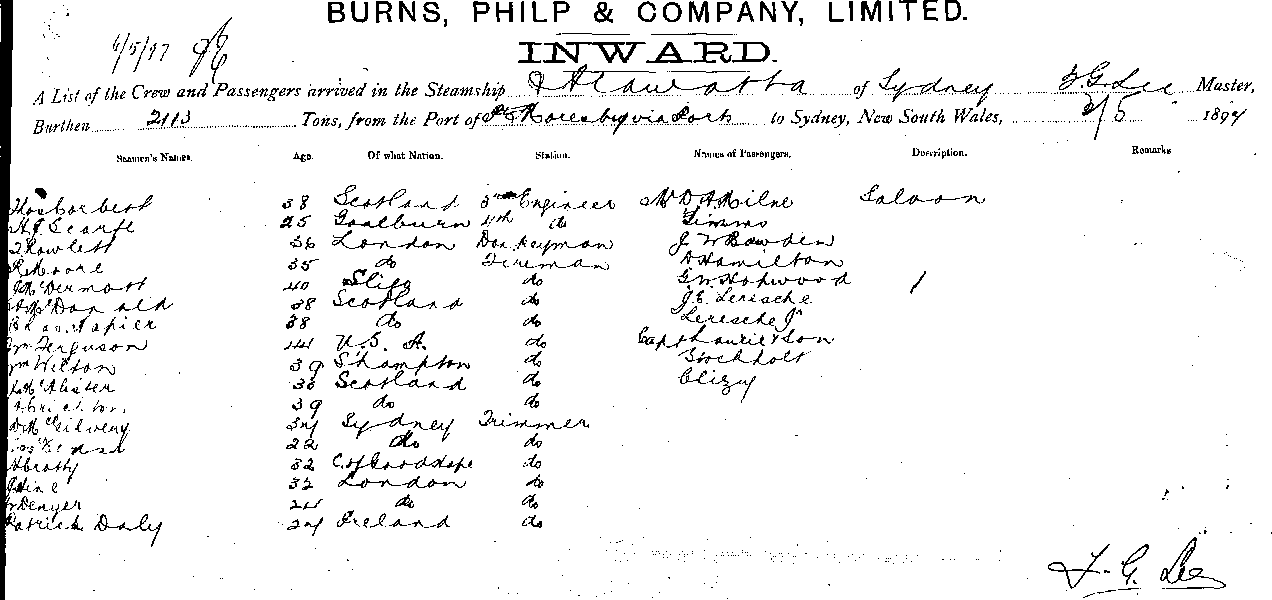 BURNS, PHILP & COMPANY, LIMITED.
6/5/97
INWARD.
A List of the Crew and Passengers arrived in the Steamship of Sydney F. G. Lee Master,
Burthen 2113 Tons, from the Port of Pt Moresby via Ports to Sydney, New South Wales, 3/5 1897
Seamen's Names. Age. Of what Nation. Station. Names of Passengers. Description. Remarks
38 Scotland 3rd Engineer Mr D A Milne Saloon
H J Scarfe 25 Goulburn 4th do Timms
T Rowlett 36 London Donkeyman J W Bowden
R Moore 35 do Fireman D Hamilton
McDermott 40 Sligo do G. W. Hopwood
McDonald 38 Scotland do J. E. Leresche
Napier 38 do do Leresche Jr
Wm Ferguson 44 U. S. A. do Capt Laurie & Son
Wm Wilton 39 S'hampton do Stockholt
McAlister 38 Scotland do
39 do do
McGilvery 24 Sydney Trimmer
22 do do
32 C. of Good Hope do
J Hine 32 London do
Denyer 24 do do
Patrick Daly 24 Ireland do
F. G. Lee